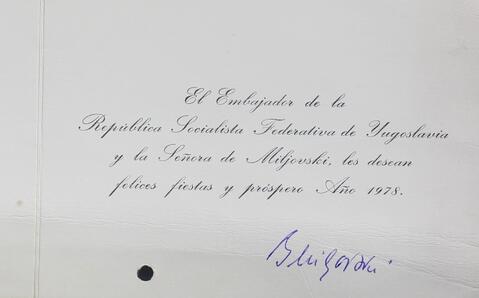 El Embajador de la
República Socialista Federativa de Yugoslavia
y la Señora de Miljovski, les desean
felices fiestas y próspero Año 1978.